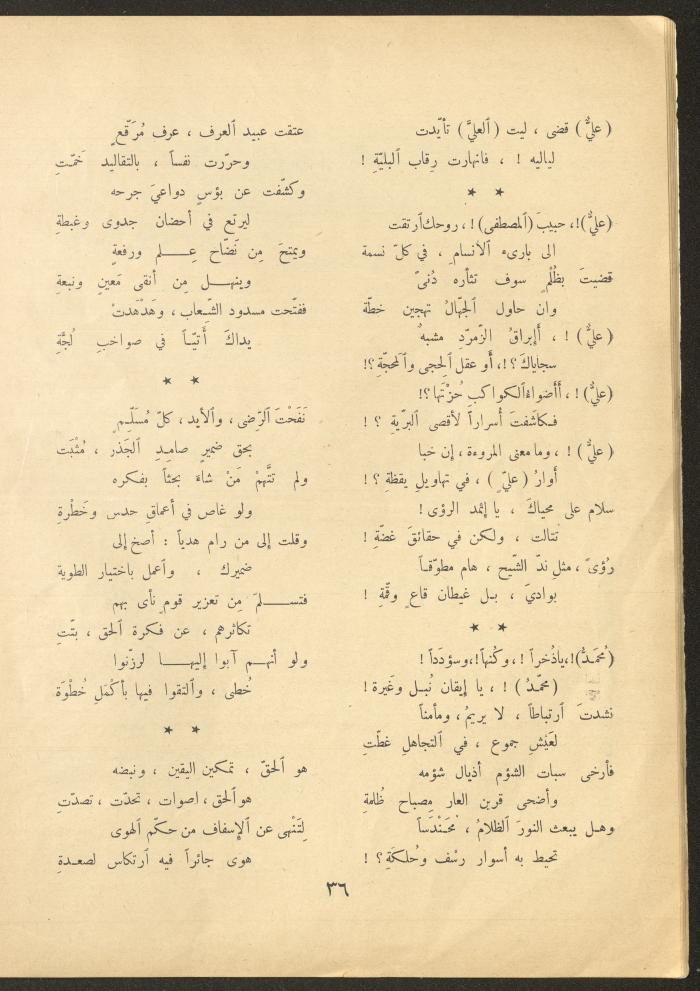 (عليٌّ) قضى ، ليت (العليَّ) تأيّدت
لياليه ! ، فانهارت رِقاب البليّةِ !
* *
(عليٌّ)!، حبيبَ (المصطفى)!، روحك ارتقت
الى بارىء الأنسامِ ، في كلّ نسمة
قضيتَ بظُلمٍ سوف تثأره دُنىً
وان حاول الجهّالُ تهجين خطّة
(عليٌّ) ! ، أإبراقُ الزّمردِ مشبهٌ
سجاياكَ ؟!، أو عقل الحِجى والمحجّةِ ؟!
(عليٌّ)! ، أأضواءُ الكواكبِ حُزْتَها ؟!
فكاشفتَ أسراراً لأقصى البرّيةِ ؟ !
(عليٌّ) ! ، وما معنى المروءة ، إن خبا
أوارُ (عليّ) ، في تهاويل يقظةِ ؟ !
سلام على محياكَ ، يا إثمد الرؤى !
تتالت ، ولكن في حقائقَ غضّةِ !
رُؤىً ، مثلِ ندّ الشّيح ، هام مطوّفاً
بواديَ ، بل غيطان قاعٍ وقمّةِ !
* *
(مُحمّدٌ)!، ياذُخراً ! ، وكُنهاً!، وسؤدَداً !
(محمّدٌ) ! ، يا إيقان نُبل وغَيرة !
نشدتَ ارتباطاً ، لا يريمُ ، ومأمناً
لعَيْشِ جموع ، في التجاهل غطّتِ
فأرخى سبات الشؤم أذيال شؤمه
وأضحى قرين العار مِصباح ظُلمةِ
وهل يبعث النورَ الظلامُ ، مُحَنْدَساً
تحيط به أسوار رشْف وحُلكَةِ ؟ !
عتقت عبيد العرف ، عرف مُرَقّعٍ
وحرّرت نفساً ، بالتقاليد خَمّتِ
وكشّفت عن بؤسٍ دواعيَ جرحه
ليرتع في أحضان جدوى وغبطةِ
ويمتحَ مِن نَضّاح عِلم ورفعةٍ
وينهل مِن أنقى مَعينٍ ونبعةِ
ففتّحت مسدود الشّعاب ، وهَدْهَدتْ
يداكَ أتيّاً في صواخبِ لُجَّةِ
* *
نَفَحْتَ الرّضى ، والأيد ، كلّ مُسَلّمٍ
بحق ضميرٍ صامِدِ الجَذر ، مُثْبَت
ولم تتَّهِمْ مَنْ شاءَ بحثاً بفكره
ولو غاص في أعماقِ حدس وخَطْرةِ
وقلت إلى من رام هدياً : أصخ إلى
ضميرك ، وأعمل باختيار الطوية
فتسلمَ مِن تعزير قومٍ نأى بهم
تكاثرهم ، عن فكرة الحق ، بتّتِ
ولو أنهم آبوا إليها لرزّنوا
خُطى ، والتقوا فيها بأكْمَلِ خُطْوَة
* *
هو الحقّ ، تمكين اليقين ، ونبضه
هو الحق ، اصوات ، تحدّت ، تصدّتِ
لِتَنْهى عن الإسفاف من حكّم الهوى
هوى جائراً فيه ارتكاس لصعدةِ
٣٦